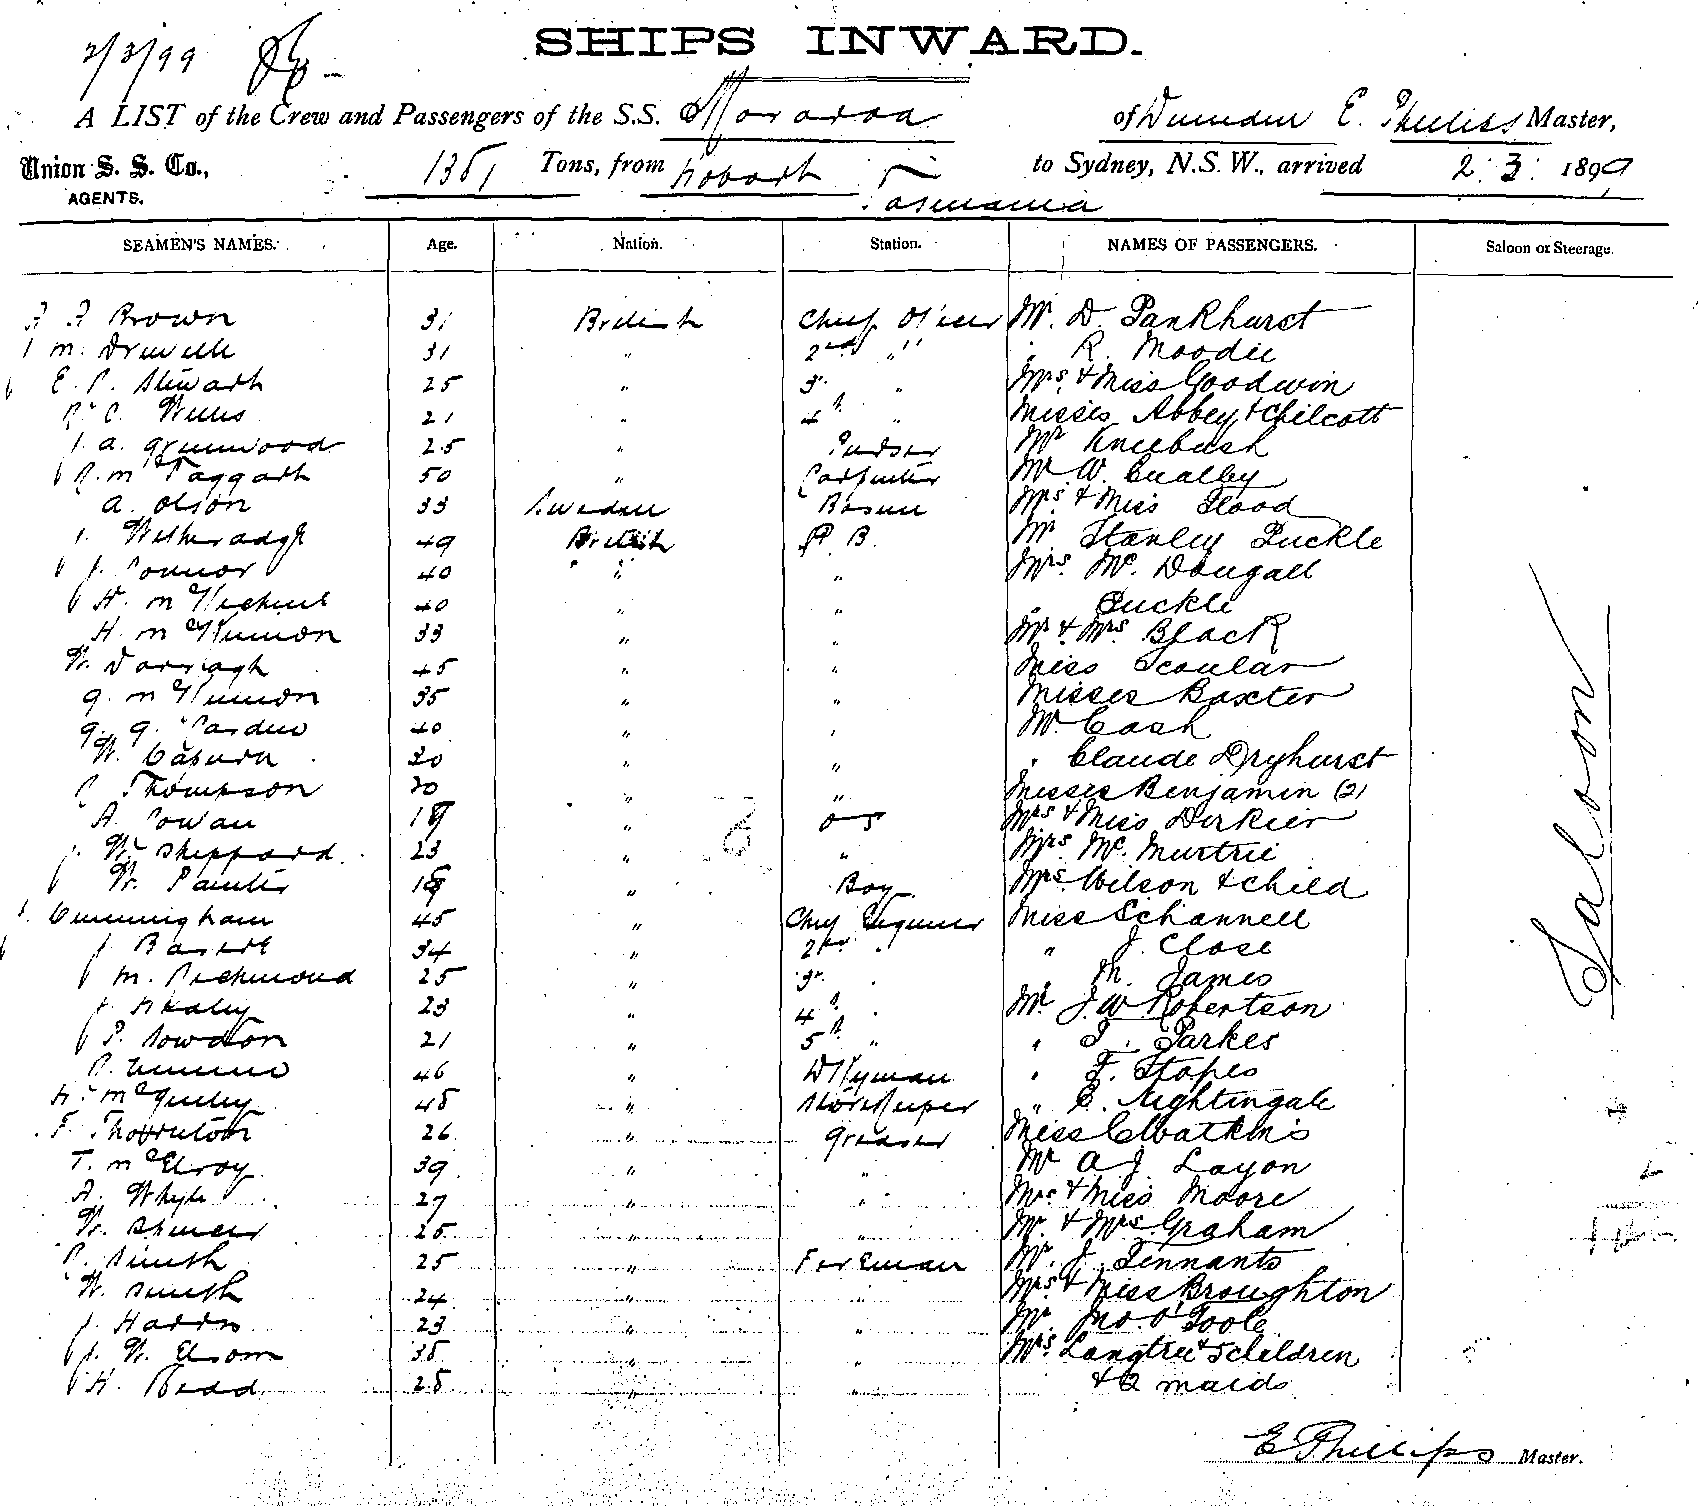 2/3/99
SHIPS INWARD.
A LIST of the Crew and Passengers of the S.S. Mararoa of Dunedin E. Phillips Master,
Union S. S. Co., 1381 Tons, from Hobart Tasmania to Sydney, N.S.W., arrived 2. 3. 1899
AGENTS.
SEAMEN'S NAMES. Age. Nation. Station. NAMES OF PASSENGERS. Saloon or Steerage.
Brown 31 British Chief Officer Mr. D. Pankhurst
M. 31 " 2nd " " R. Moodie
E. P. Stewart 25 " 3rd " Mrs & Miss Goodwin
C. Willis 21 " 4th " Misses Abbey & Chilcott
A. Greenwood 25 " Purser Mr Kneebush
McTaggart 50 " Carpenter Mr W.
A. Olson 33 Sweden Bosun Mrs & Miss Flood
49 British A. B. Mr Stanley Puckle
J. Connor 40 " " Mrs. Mc. Dougall
H. 40 " " " Puckle
H. McKinnon 33 " " Mr & Mrs Black
W. Darragh 45 " " Miss Scoular
McKinnon 35 " " Misses Baxter
40 " " Mr. Cash
W. 30 " " " Claude Dryhurst
Thompson 20 " " Misses Benjamin (2)
A. Cowan 19 " O S Mrs & Miss
W. Sheppard 23 " " Mrs. Mc. Murtrie
W. 18 " Boy Mrs. Wilson & child
Cunningham 45 " Chief Engineer Miss Schannell
J. 34 " 2nd " " J. Close
M. Richmond 25 " 3rd " M. James
J. Healey 23 " 4th " Mr. J. W Robertson
P. Sowdon 21 " 5th " " T. Parkes
46 " Dkyman " F. Stopes
H. 48 " Storekeeper " C. Nightingale
F. Thornton 26 " Greaser Miss C Watkins
T. McElroy 39 " " Mr A J. Layon
A. Whyte 27 " " Mrs & Miss Moore
W. Spencer 25 " " Mr. & Mrs Graham
Smith 25 " Fireman Mr. J. Tennants
W. Smith 24 " " Mrs & Miss Broughton
J. Harris 23 " " Mr Jno. O'Toole
J. W. Elsom 38 " " Mrs. Langtree & 5 children
H. Read 28 " " & 2 maids
Saloon
E Phillips Master.